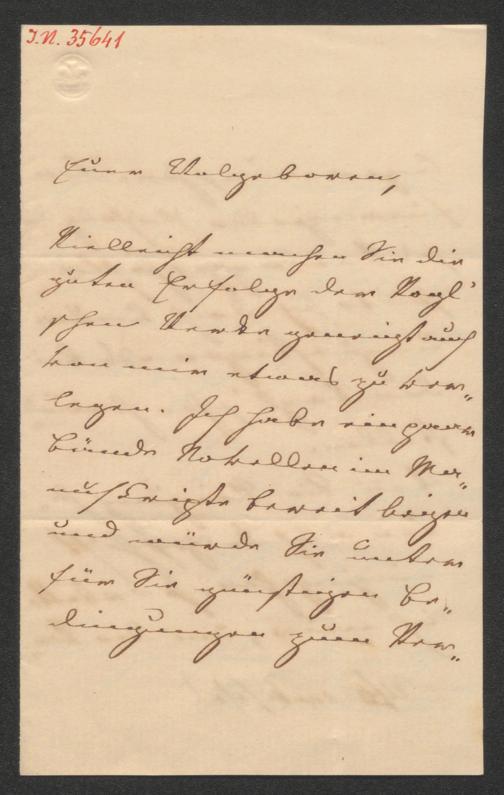 I.N. 35641
Euer Wolgeboren,
Vielleicht machen Sie die
guten Erfolge der Vogl'
schen Werke geneigt auch
von mir etwas zu ver„
legen. Ich habe ein paar
Bände Novellen im Ma„
nuskripte bereit liegen
und würde Sie unter
für Sie günstigen Be„
dingungen zum Ver„